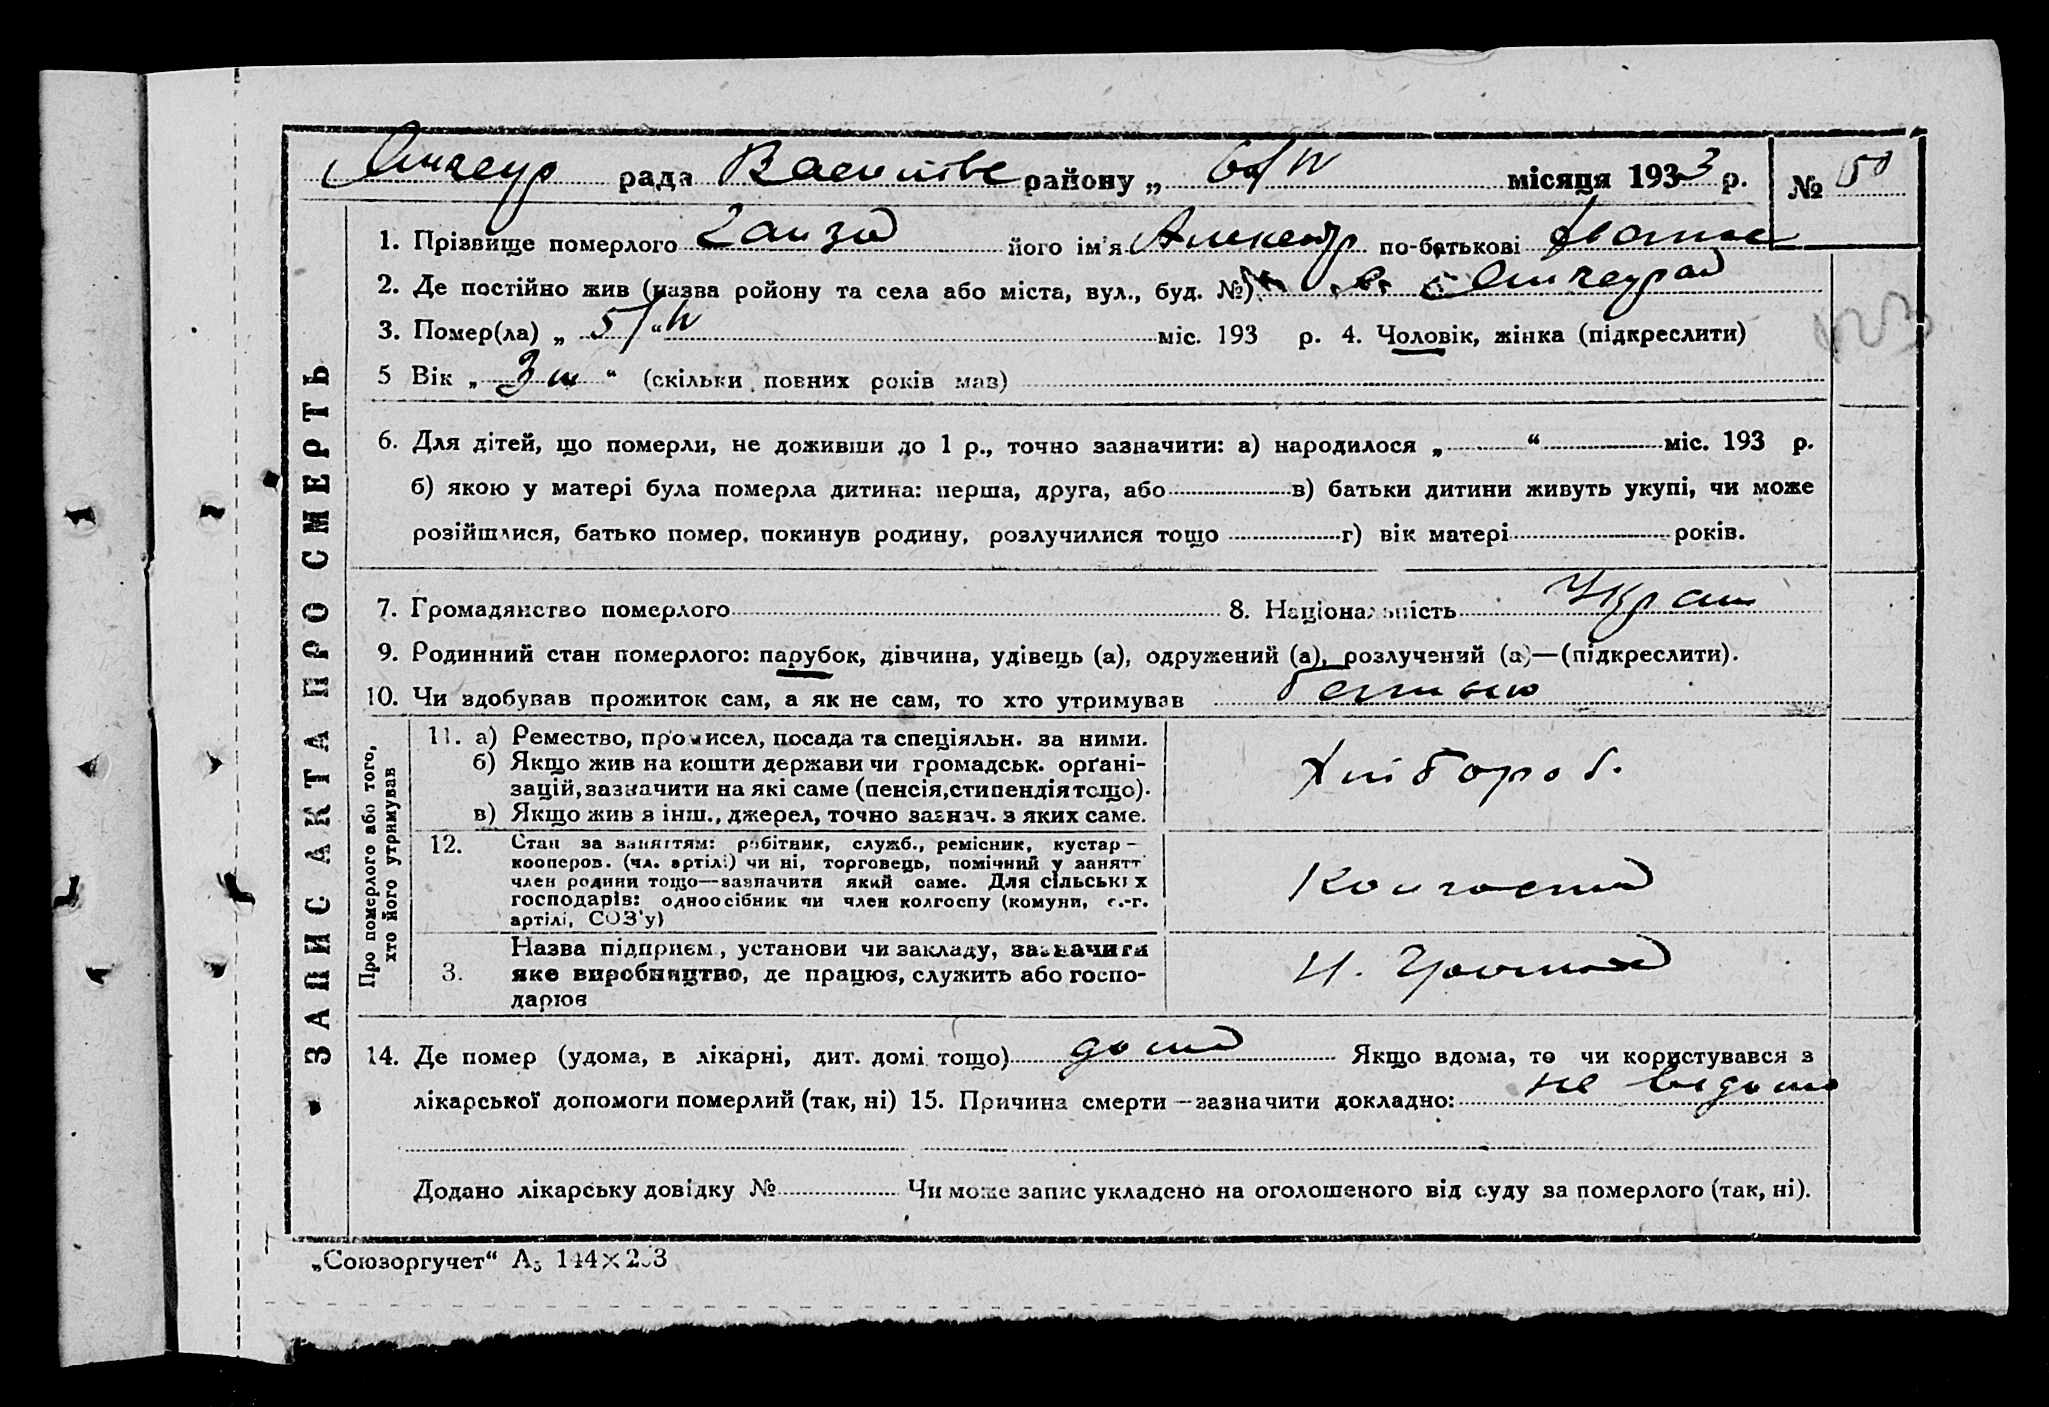 рада Василівс району „ 6/IV місяця 1933 р. № 50
1. Прізвище померлого Ганза його ім'я Александр по-батькові Іванов
2. Де постійно жив (назва ройону та села або міста, вул., буд. №)
3. Помер(ла) „ 5/IV “ міс. 193 р. 4. Чоловік, жінка (підкреслити)
5 Вік „ 3 м “ (скільки повних років мав)
6. Для дітей, що померли, не доживши до 1 р., точно зазначити: а) народилося „ “ міс. 193 р.
б) якою у матері була померла дитина: перша, друга, або в) батьки дитини живуть укупі, чи може
розійшлися, батько помер, покинув родину, розлучилися тощо г) вік матері років.
7. Громадянство померлого 8. Національність Украш
9. Родинний стан померлого: парубок, дівчина, удівець (а), одружений (а), розлучений (а)—(підкреслити).
10. Чи здобував прожиток сам, а як не сам, то хто утримував батько
ЗАПИС АКТА ПРО СМЕРТЬ
Про померлого або того, хто його утримував
11. а) Ремество, промисел, посада та спеціяльн. за ними.
б) Якщо жив на кошти держави чи громадськ. орґані-
зацій, зазначити на які саме (пенсія, стипендія тощо).
в) Якщо жив з інш., джерел, точно зазнач. з яких саме.
Хлібороб.
12. Стан за заняттям: робітник, служб., ремісник, кустар–
кооперов. (чл. артілі) чи ні, торговець, помічний у занятт
член родини тощо—зазначити який саме. Для сільських
господарів: одноосібник чи член колгоспу (комуни, с.-г.
артілі, СОЗ'у)
Колгоспник
Назва підприєм., установи чи закладу, зазначити
3. яке виробництво, де працює, служить або госпо-
дарює
14. Де помер (удома, в лікарні, дит. домі тощо) дома Якщо вдома, то чи користувався з
лікарської допомоги померлий (так, ні) 15. Причина смерти—зазначити докладно: не відомо
Додано лікарську довідку № Чи може запис укладено на оголошеного від суду за померлого (так, ні).
„Союзоргучет“ А₅ 144×203